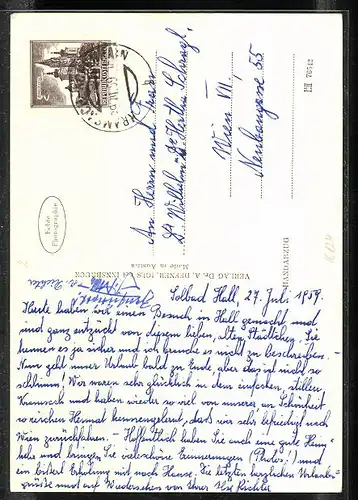 Solbad Hall, 27. Juli 1959.
Heute haben wir einen Besuch in Hall gemacht und
sind ganz entzückt von diesem lieben, alten Städtchen. Sie
kennen es ja sicher und ich brauche es nicht zu beschreiben. -
Nun geht unser Urlaub bald zu Ende, aber das ist nicht so
schlimm! Wir waren sehr glücklich in dem einfachen, stillen
Kramsach und haben wieder so viel von unserer an Schönheit
so reichen Heimat kennengelernt, dass wir sehr befriedigt nach
Wien zurückfahren. - Hoffentlich haben Sie auch eine gute
und bringen Sie viel schöne Erinnerungen (Photos!) und
ein bisserl Erholung mit nach Hause. Die letzten herzlichen Urlaubs-
grüsse und auf Wiedersehen von Ihrer
An Herrn und Frau
Dr. Wilhelm u. Dr. Herta
Wien VII.
Neubaugasse 55
Echte
Photographie
VERLAG DR. A. DEFNER, IGLS BEI INNSBRUCK
Made in Austria
HANDABZUG
KRAMSACH